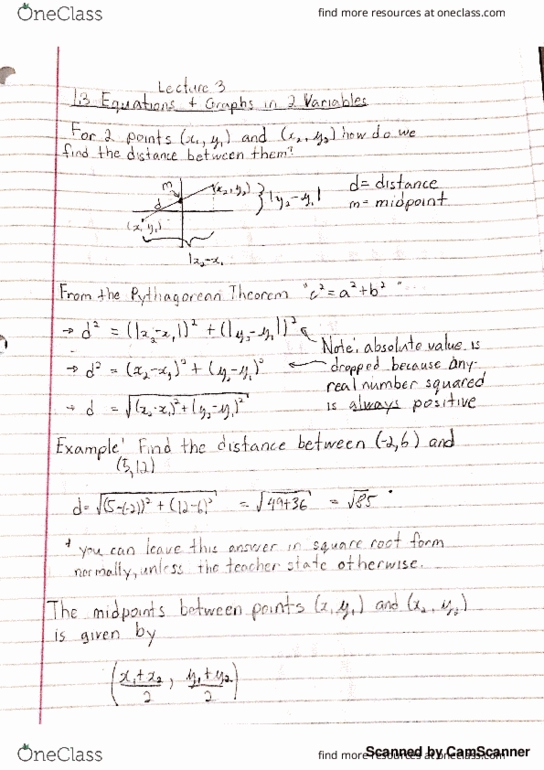 OneClass
find more resources at oneclass.com
Lecture 3
1.3 Equations + Graphs in 2 Variables
For 2 points (x₁, y₁) and (x₂, y₂) how do we
find the distance between them?
m (x₂, y₂) } |y₂-y₁| d = distance
d m = midpoint
(x₁ y₁)
|x₂-x₁
From the Pythagorean Theorem "c² = a² + b²"
→ d² = (|x₂-x₁|)² + (|y₂-y₁|)²
Note: absolute value is
→ d² = (x₂-x₁)² + (y₂-y₁)² dropped because any
real number squared
→ d = √(x₂-x₁)² + (y₂-y₁)² is always positive
Example: Find the distance between (-2,6) and
(5,12)
d = √(5-(-2))² + (12-6)² = √49+36 = √85
* you can leave this answer in square root form
normally, unless the teacher state otherwise.
The midpoints between points (x, y₁) and (x₂, y₂)
is given by
(x₁+x₂/2, y₁+y₂/2)
OneClass
find more resources at oneclass.com
Scanned by CamScanner